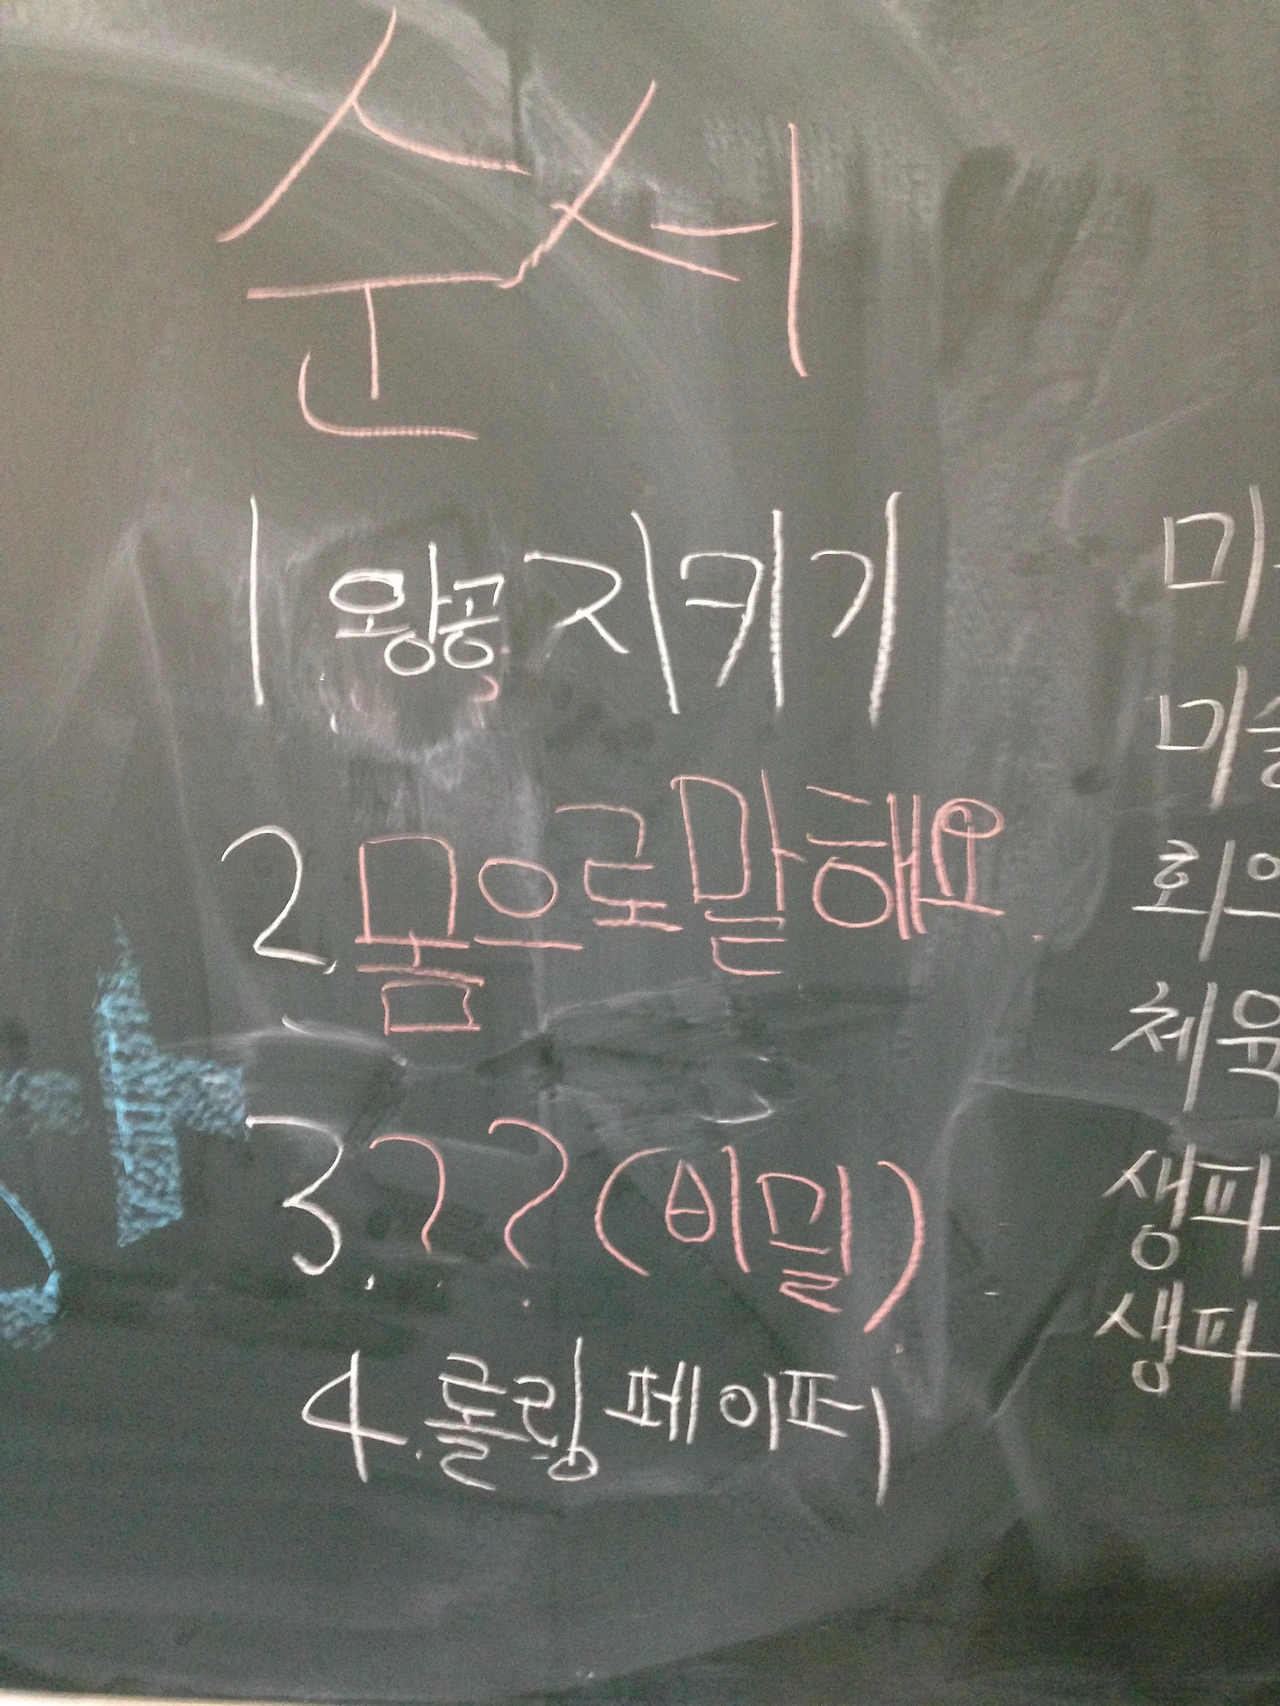 순서
1 왕공 지키기
2. 몸으로말해요
3. ?? (비밀)
4. 롤링 페이퍼
미
미술
회의
체육
생파
생파